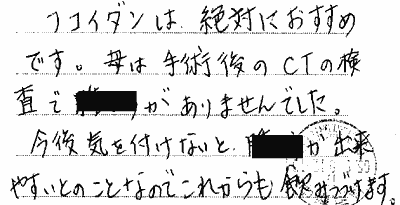 フコイダンは、絶対におすすめ
です。母は手術後のCTの検
査で がありませんでした。
今後気を付けないと、 が出来
やすいとのことなのでこれからも飲みつづけます。